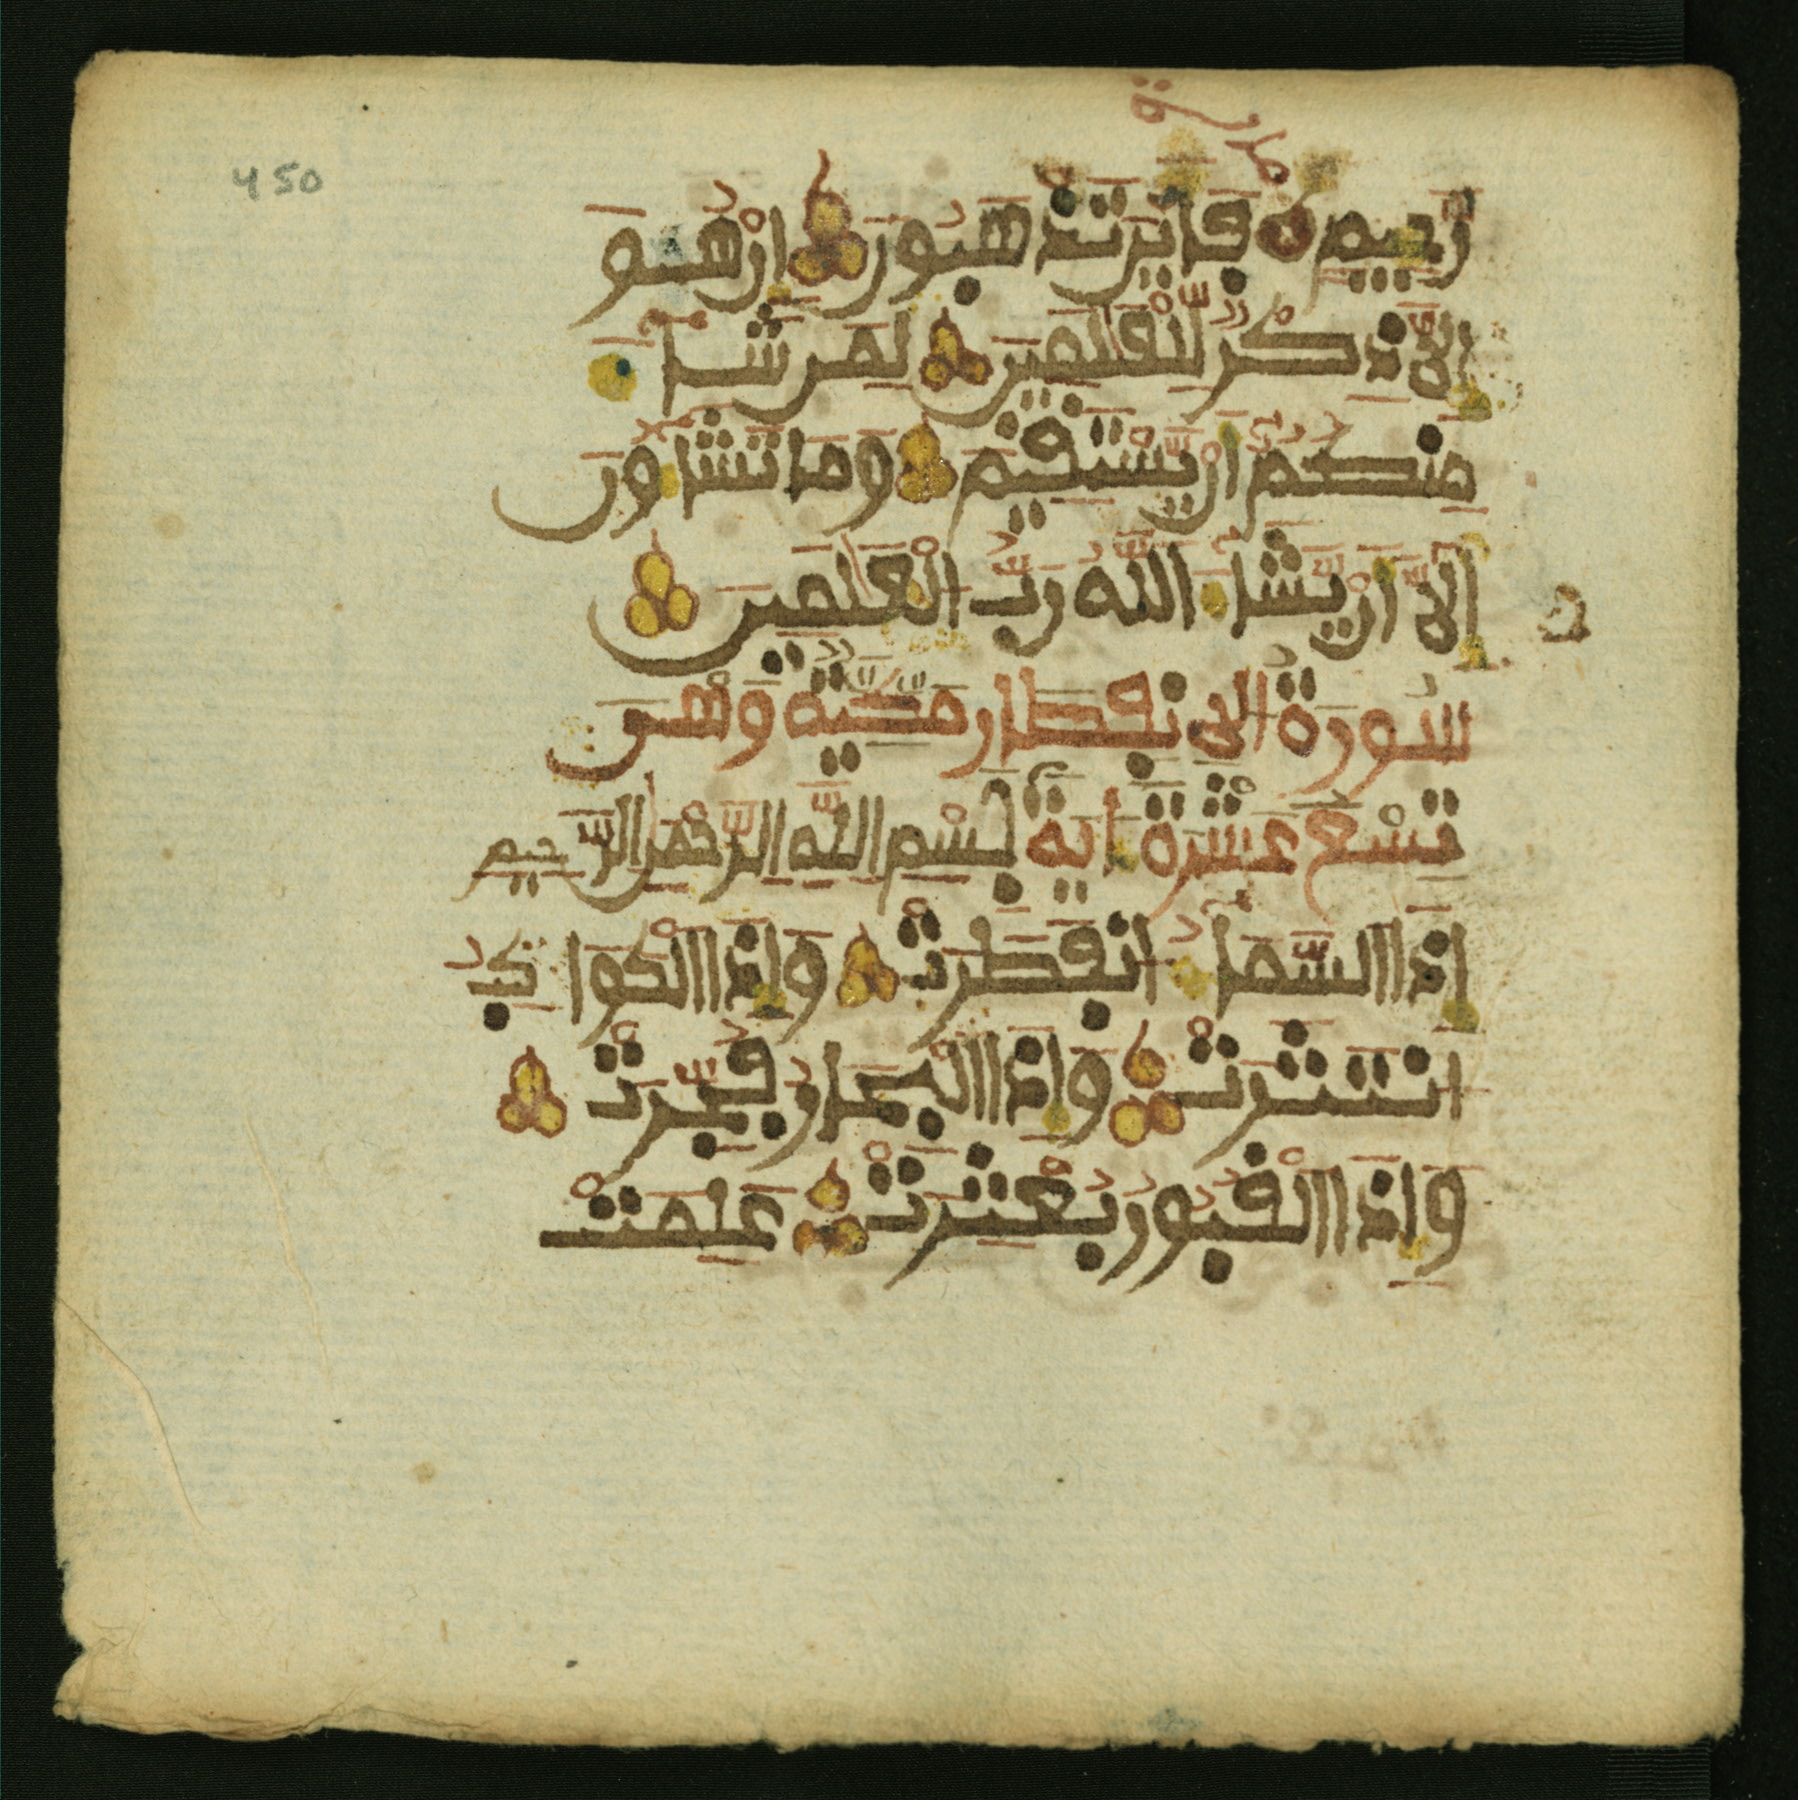 450
رَجِيمٍ فَأَيْنَ تَذْهَبُونَ إِنْ هُوَ
إِلَّا ذِكْرٌ لِّلْعَٰلَمِينَ لِمَن شَآءَ
مِنكُمْ أَنْ يَّسْتَقِيمَ وَمَا تَشَآءُونَ
إِلَّآ أَنْ يَّشَآءَ اللَّهُ رَبُّ الْعَٰلَمِينَ
سُورَةُ الىنفطار مَكِّيَّةٌ وَهْىَ
تِسْعَ عَشْرَةَ ءَايَةً بِسْمِ اللَّهِ الرَّحْمَٰنِ الرَّحِيمِ
إِذَا السَّمَآءُ انفَطَرَتْ وَإِذَا الْكَوَاكِبُ
انتَثَرَتْ وَإِذَا الْبِحَارُ فُجِّرَتْ
وَإِذَا الْقُبُورُ بُعْثِرَتْ عَلِمَتْ